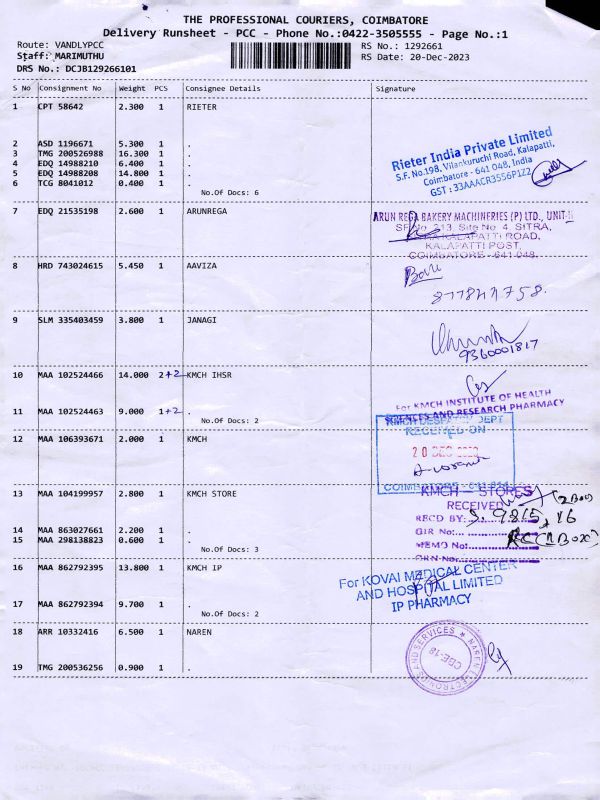 THE PROFESSIONAL COURIERS, COIMBATORE
Delivery Runsheet - PCC - Phone No.:0422-3505555 - Page No.:1
Route: VANDLYPCC RS No.: 1292661
Staff: MARIMUTHU RS Date: 20-Dec-2023
DRS No.: DCJB129266101
S No Consignment No Weight PCS Consignee Details Signature
1 CPT 58642 2.300 1 RIETER
2 ASD 1196671 5.300 1 .
3 TMG 200526988 16.300 1 .
4 EDQ 14988210 6.400 1 .
5 EDQ 14988208 14.800 1 .
6 TCG 8041012 0.400 1 .
No.Of Docs: 6
Rieter India Private Limited
S.F. No.198, Vilankuruchi Road, Kalapatti,
Coimbatore - 641 048, India
GST : 33AAACR3556P1Z2
7 EDQ 21535198 2.600 1 ARUNREGA
ARUN REGA BAKERY MACHINERIES (P) LTD., UNIT-II
SF No 213, Site No 4, SITRA,
KALAPATTI ROAD,
KALAPATTI POST,
COIMBATORE - 641 048.
8 HRD 743024615 5.450 1 AAVIZA
9 SLM 335403459 3.800 1 JANAGI
9360001817
10 MAA 102524466 14.000 2+2 KMCH IHSR
11 MAA 102524463 9.000 1+2 .
No.Of Docs: 2
For KMCH INSTITUTE OF HEALTH
SCIENCES AND RESEARCH PHARMACY
12 MAA 106393671 2.000 1 KMCH
KMCH DEPT
RECEIVED ON
20 DEC 2023
COIMBATORE - 641 014
13 MAA 104199957 2.800 1 KMCH STORE
14 MAA 863027661 2.200 1 .
15 MAA 298138823 0.600 1 .
No.Of Docs: 3
KMCH - STORES
RECEIVED
RECD BY:
GIR No:
MEMO No:
GRN No:
16 MAA 862792395 13.800 1 KMCH IP
17 MAA 862792394 9.700 1 .
No.Of Docs: 2
For KOVAI MEDICAL CENTER
AND HOSPITAL LIMITED
IP PHARMACY
18 ARR 10332416 6.500 1 NAREN
19 TMG 200536256 0.900 1 .
NAREN ELECTRONICS AND SERVICES
CBE-18